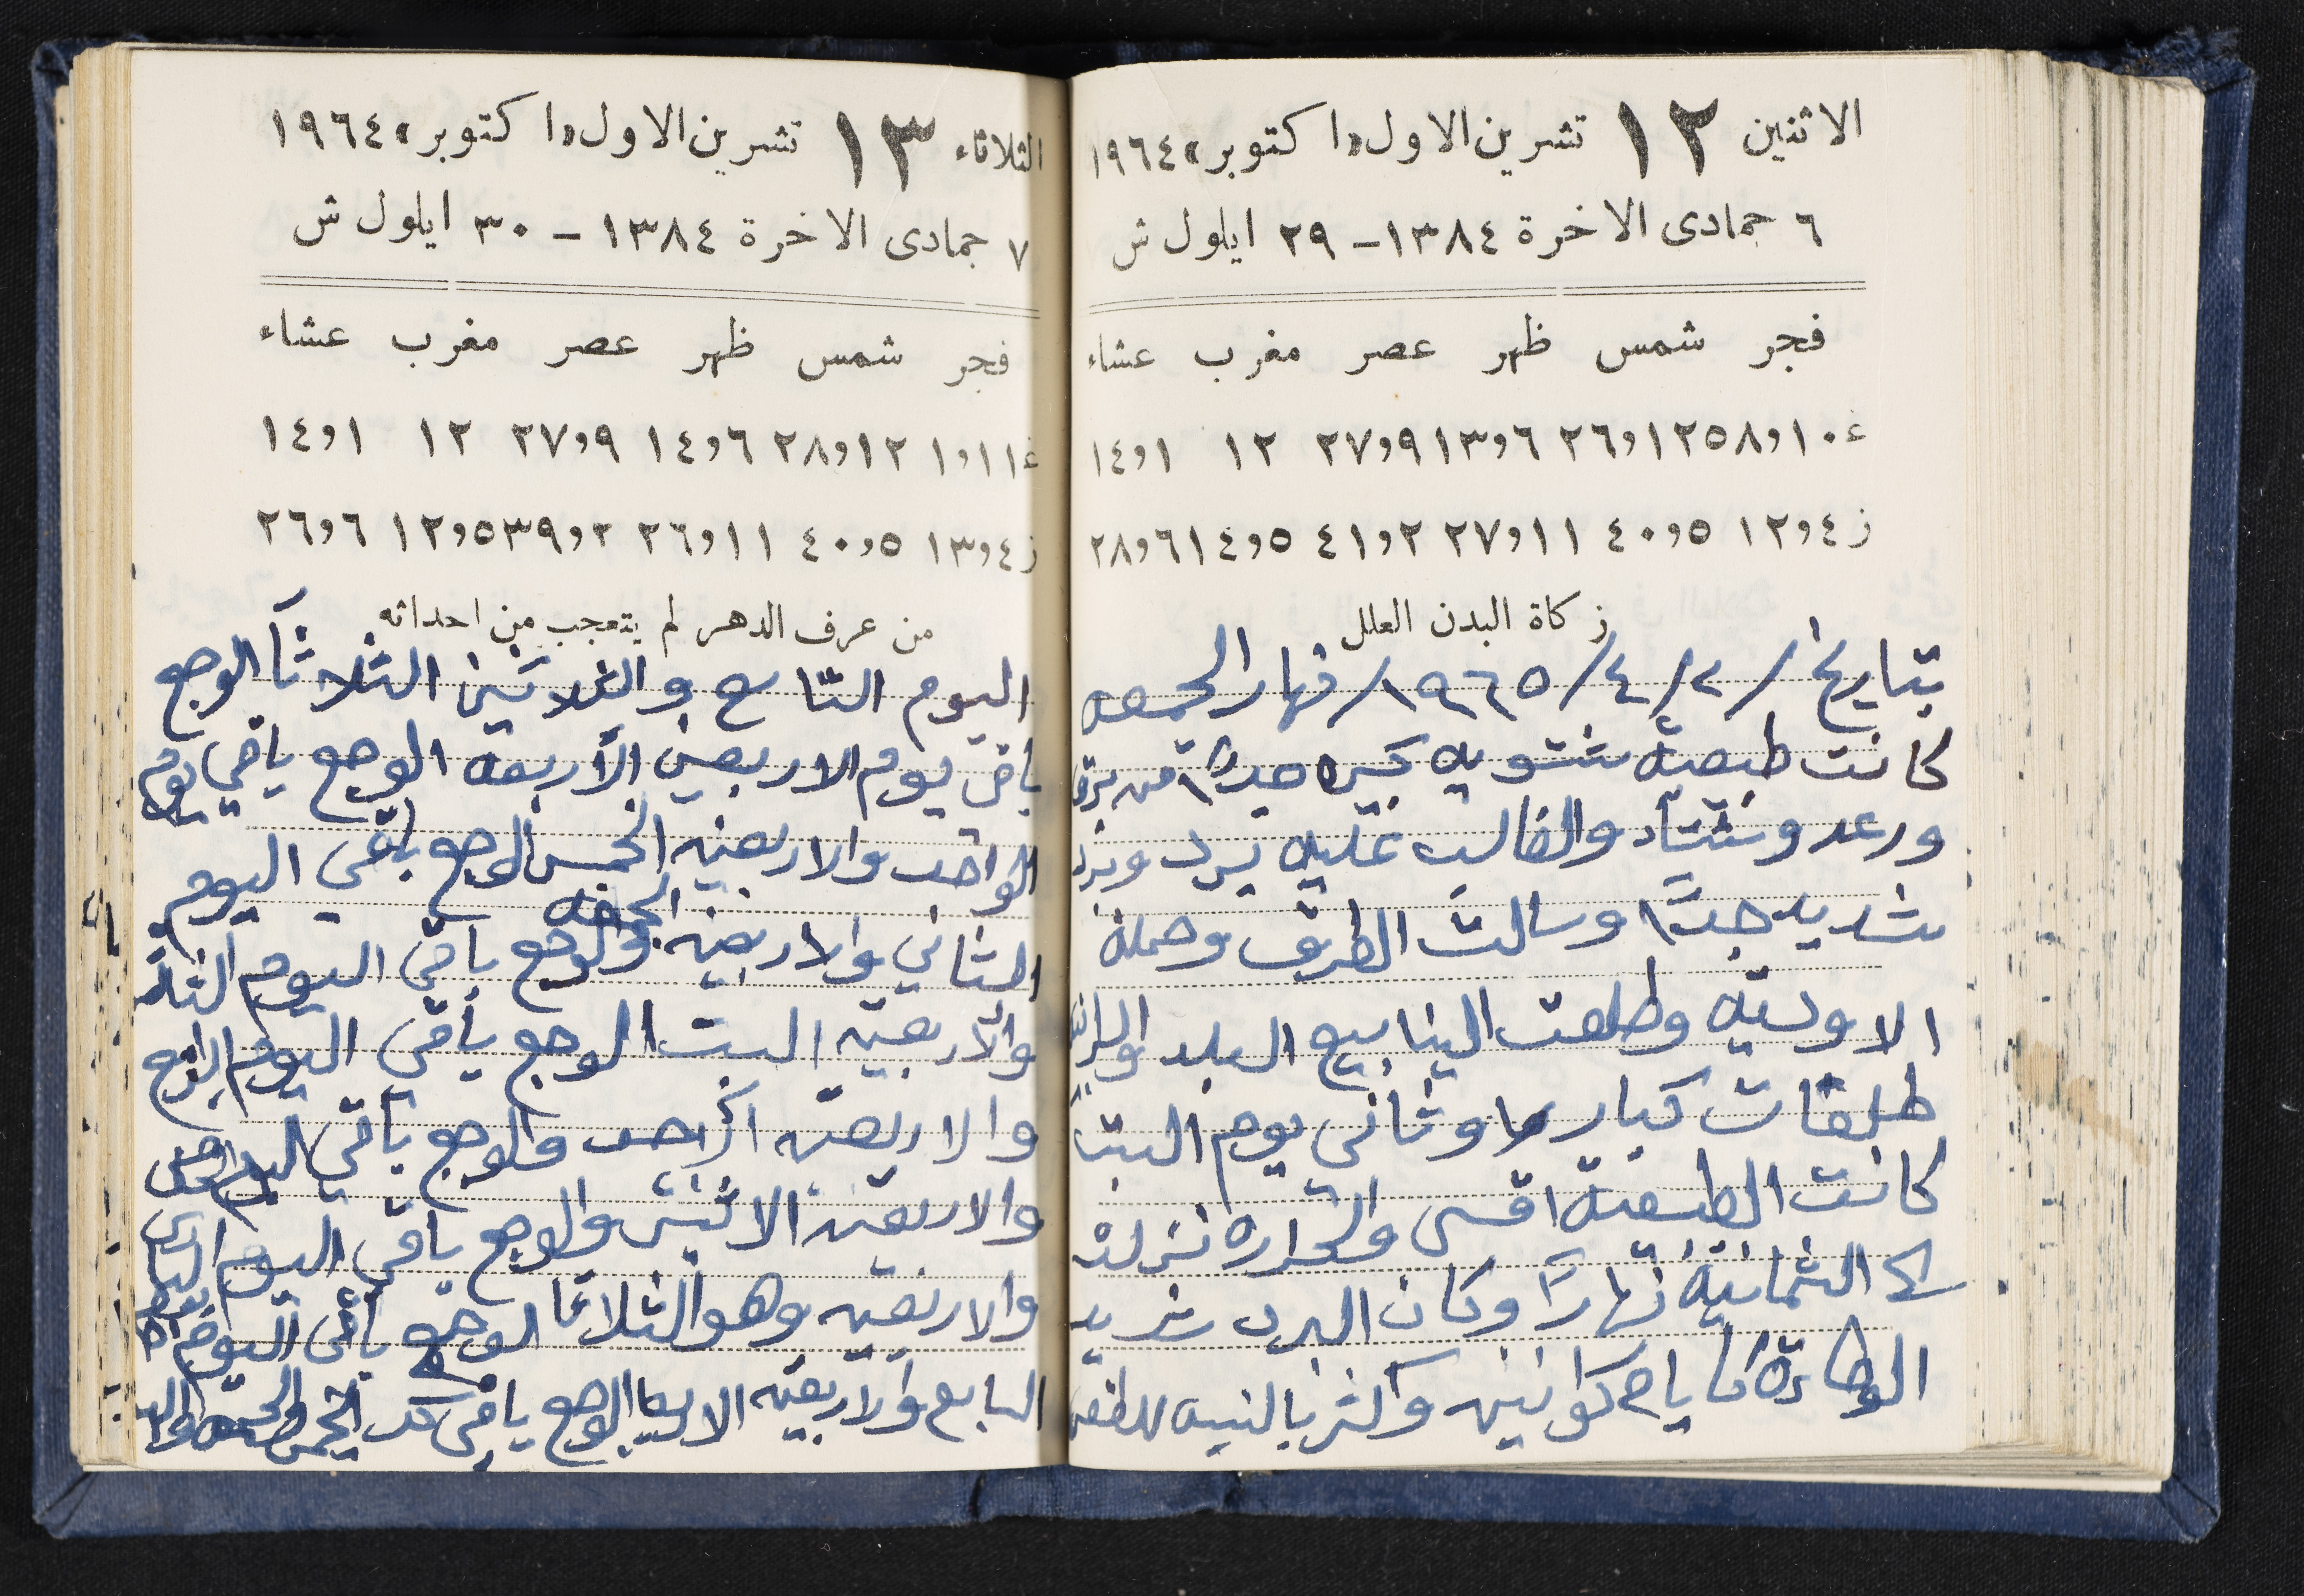 الاثنين ١٢ تشرين الاول «اكتوبر» ١٩٦٤
٦ جمادى الاخرة ١٣٨٤ - ٢٩ ايلول ش
فجر شمس ظهر عصر مغرب عشاء
غ ١٠و٥٨ ١٢و٢٦ ٦و١٣ ٩و٢٧ ١٢ ١و١٤
ز ٤و١٢ ٥و٤٠ ١١و٢٧ ٢و٤١ ٥و١٤ ٦و٢٨
زكاة البدن العلل
بتاريخ /٢/٤/١٩٦٥/ نهار الجمعه
كانت طبعية شتويه كبيره جداً من برق
ورعد وشتاء والغالب عليه برد وبرد
شديد جداً وسالت الطرق وحملة
الاوديه وطلعت الينابيع البلد
طلقات كبار وثاني يوم السبت
كانت الطبيعية اقسى والحراره نزلة
الى الثمانية نهاراً وكان البرد شديد
الوطاءة كايام كوانين واكثر بالنسبه للطقس
الثلاثاء ١٣ تشرين الاول «اكتوبر» ١٩٦٤
٧ جمادى الاخرة ١٣٨٤ - ٣٠ ايلول ش
فجر شمس ظهر عصر مغرب عشاء
غ ١١و١ ١٢و٢٨ ٦و١٤ ٩و٢٧ ١٢ ١و١٤
ز ٤و١٣ ٥و٤٠ ١١و٢٦ ٢و٣٩ ٥و١٢ ٦و٢٦
من عرف الدهر لم يتعجب من احداثه
اليوم التاسع والثلاثين الثلاثا الوجع
باقي يوم الاربعين الأربعه الوجع باقي يوم
الواحد والاربعين الخميس الوجع باقي اليوم
الثاني والاربعين الجمعه والوجع باقي اليوم الثالث
والاربعين السبت الوجع باقي اليوم الرابع
والاربعين الاحد والوجع باقي اليوم الخامس
والاربعين الاثنين والوجع باقي اليوم السادس
والاربعين وهو الثلاثا الوجع باقي اليوم
السابع والاربعين الاربعا الوجع باقي الخميس الجمعه